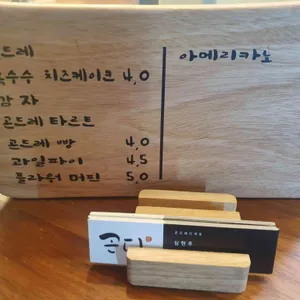 드레
옥수수 치즈케이크 4,0
감자
곤드레 타르트
곤드레 빵 4,0
과일파이 4,5
플라워 머핀 5,0
아메리카노